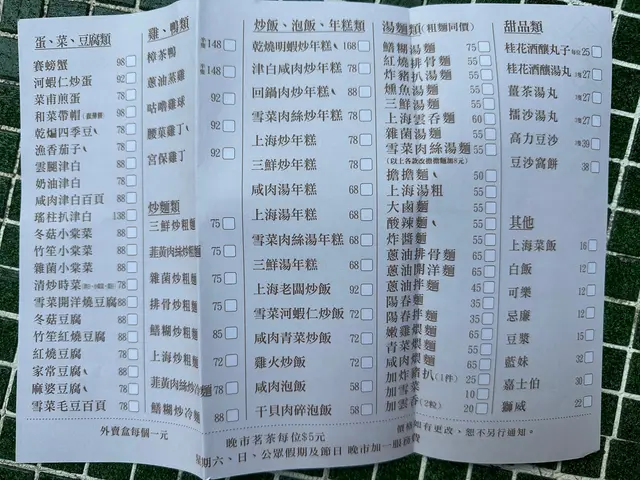 蛋、菜、豆腐類
賽螃蟹 98
河蝦仁炒蛋 92
菜甫煎蛋 78
和菜帶帽 98
乾煸四季豆 78
漁香茄子 78
雲腿津白 88
奶油津白 78
咸肉津白百頁 88
瑤柱扒津白 138
冬菇小棠菜 88
竹笙小棠菜 88
雜菌小棠菜 88
清炒時菜 78
雪菜開洋燒豆腐 88
冬菇豆腐 88
竹笙紅燒豆腐 88
紅燒豆腐 78
家常豆腐 78
麻婆豆腐 78
雪菜毛豆百頁 78
外賣盒每個一元
雞、鴨類
樟茶鴨 半隻 148
蔥油蒸雞 半隻 148
咕嚕雞球 92
腰菓雞丁 92
宮保雞丁 92
炒麵類
三鮮炒粗麵 75
韮黃肉絲炒粗麵 75
雜菌炒粗麵 75
排骨炒粗麵 75
鱔糊炒粗麵 85
上海炒粗麵 72
韮黃肉絲炒冷麵 78
鱔糊炒冷麵 88
炒飯、泡飯、年糕類
乾燒明蝦炒年糕 168
津白咸肉炒年糕 78
回鍋肉炒年糕 88
雪菜肉絲炒年糕 78
上海炒年糕 78
三鮮炒年糕 78
咸肉湯年糕 68
上海湯年糕 68
雪菜肉絲湯年糕 68
三鮮湯年糕 68
上海老闆炒飯 92
雪菜河蝦仁炒飯 72
咸肉青菜炒飯 72
雞火炒飯 72
咸肉泡飯 58
干貝肉碎泡飯 58
晚市茗茶每位$5元
湯麵類(粗麵同價)
鱔糊湯麵 75
紅燒排骨麵 55
炸豬扒湯麵 55
燻魚湯麵 55
三鮮湯麵 55
上海雲吞麵 60
雜菌湯麵 55
雪菜肉絲湯麵 55
(以上各款改擔擔麵加8元)
擔擔麵 50
上海湯粗 55
大鹵麵 55
酸辣麵 55
炸醬麵 55
蔥油排骨麵 65
蔥油開洋麵 65
蔥油拌麵 45
陽春麵 35
陽春拌麵 35
嫩雞煨麵 65
青菜煨麵 55
咸肉煨麵 65
加炸豬扒(1件) 25
加雪菜 10
加雲吞(2粒) 20
甜品類
桂花酒釀丸子 每位25
桂花酒釀湯丸 3隻27
薑茶湯丸 3隻27
擂沙湯丸 3隻27
高力豆沙 3隻39
豆沙窩餅 38
其他
上海菜飯 16
白飯 12
可樂 12
忌廉 12
豆漿 15
藍妹 32
嘉士伯 30
獅威 22
價格如有更改，恕不另行通知。
星期六、日、公眾假期及節日 晚市加一服務費